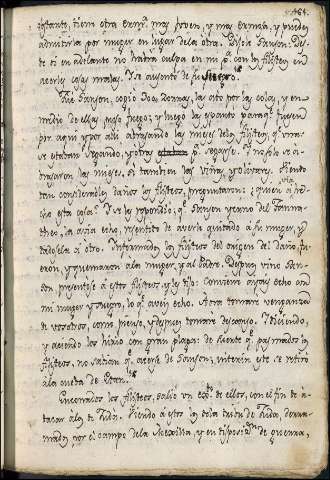 464.
obstante, tiene otra herm.ª mas joven, y mas hermosa, y puedes
admitirla por muger en lugar de la otra. Dijole Sanson: Des-
de si en adelante no habra culpa en mi p.ª con los filisteos en
acerles cosas malas. Y se ausentó de su suegro.
Fue Sanson, cogió 300 Zorras, las ató por las colas, y en
medio de ellas puso fuego; y luego las espanto para q.e fuesen
por aqui y por alli abrasando las mieses de los filisteos, q.e unas
se estaban segando, y otras p.ª segarse. Y no solo se a-
brasaron las mieses, si tambien las viñas, y olivares. Siendo
tan considerables daños los filisteos, preguntaron: ¿quien a he-
cho esta cosa? Y se les respondió, q.e Sanson yerno del Tamna-
theo, la a echo, resentido de averle quitado a su muger, y
dadosela a otro. Informados los filisteos del origen del daño, fu-
eron, y quemaron a la muger, y al Padre. Despues vino San-
son a estos filisteos, y les dijo: Conviene ayais echo con
mi muger y suegro, lo q.e aveis echo. Aora tomare venganza
de vosotros, como pienso, y despues tomare descanso. Y diciendo,
y aciendo los hirio con gran plaga: de suerte q.e pasmados los
filisteos, no sabian q.e acerse de Sanson; interin este se retiró
a la cueva de Etan.
Enconados los filisteos, salio un exto de ellos, con el fin de a-
tacar a los de Judá. Viendo a estos los de la tribu de Juda, derra-
mados por el campo de la, y en disposi.on de guerra,